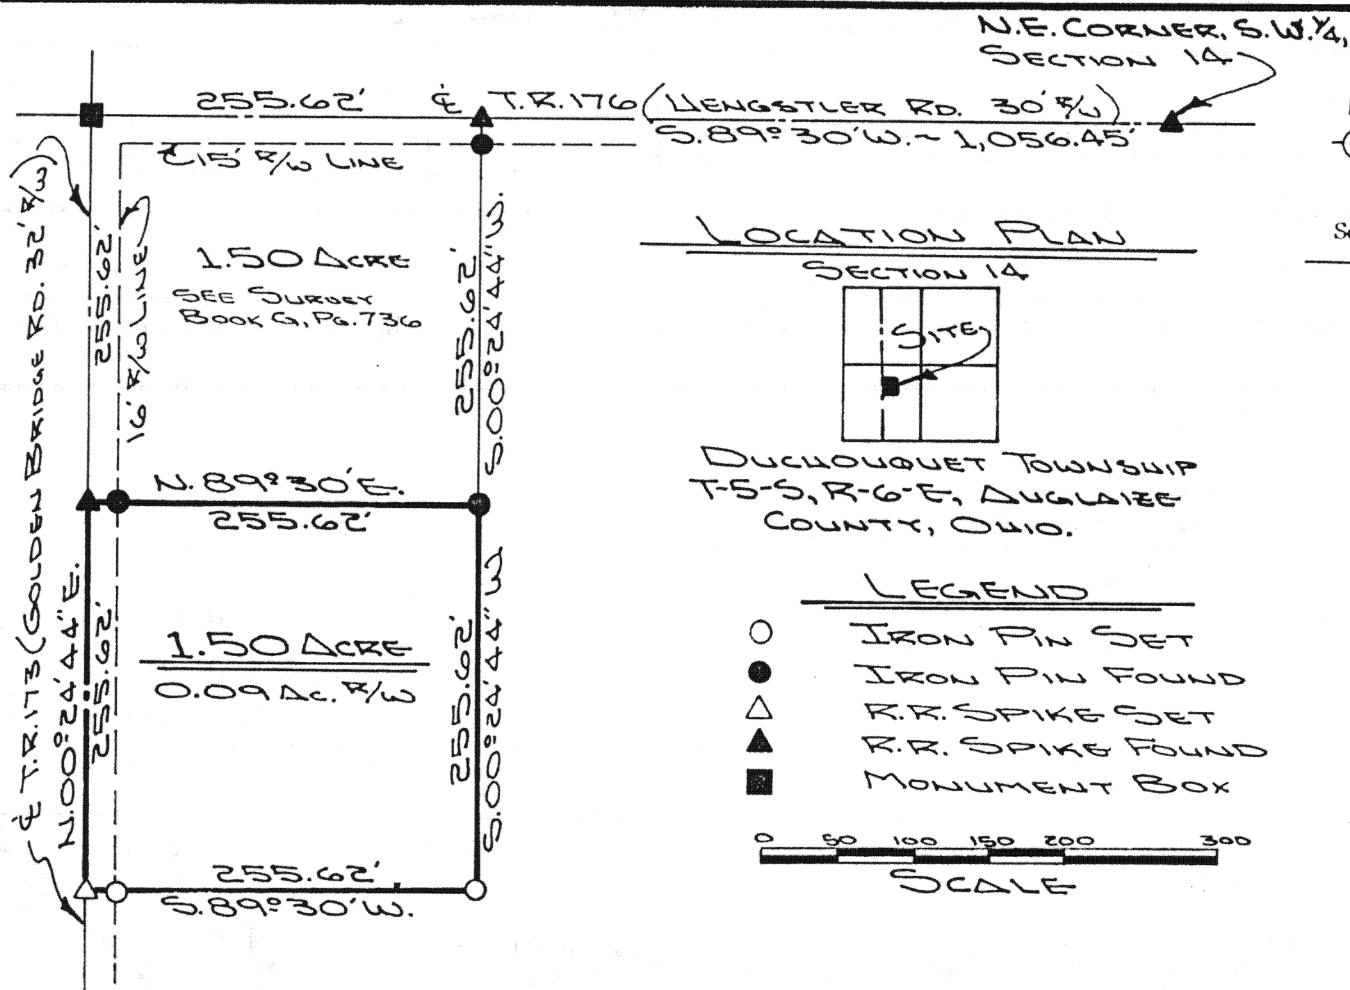 N.E. CORNER, S.W. ¼,
SECTION 14
255.62' ℄ T.R. 176 (HENGSTLER RD. 30' R/W)
S. 89° 30' W. ~ 1,056.45'
15' R/W LINE
℄ T.R. 173 (GOLDEN BRIDGE RD. 32' R/W)
255.62'
16' R/W LINE
1.50 ACRE
SEE SURVEY
BOOK G, PG. 736
255.62'
S. 00° 24' 44" W.
N. 89° 30' E.
255.62'
N. 00° 24' 44" E.
255.62'
1.50 ACRE
0.09 AC. R/W
255.62'
S. 00° 24' 44" W
255.62'
S. 89° 30' W.
LOCATION PLAN
SECTION 14
SITE
DUCHOUQUET TOWNSHIP
T-5-S, R-6-E, AUGLAIZE
COUNTY, OHIO.
LEGEND
IRON PIN SET
IRON PIN FOUND
R.R. SPIKE SET
R.R. SPIKE FOUND
MONUMENT BOX
0 50 100 150 200 300
SCALE